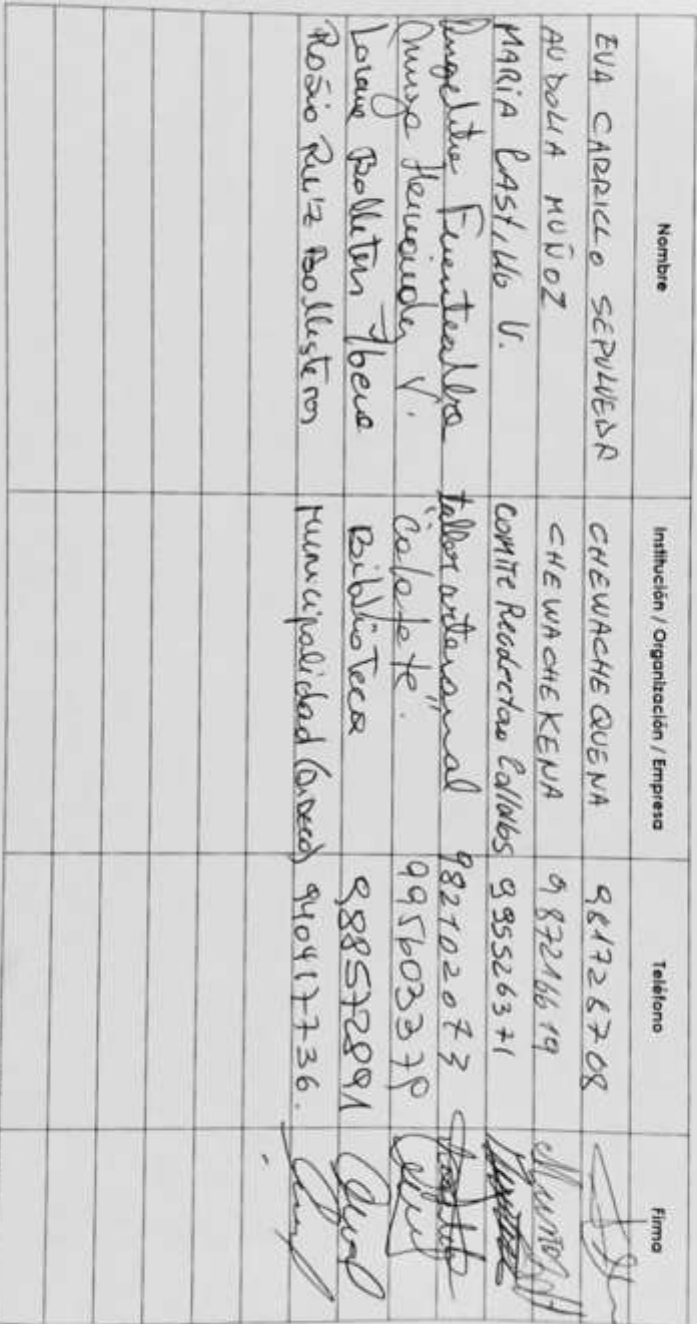 Nombre Institución / Organización / Empresa Teléfono Firma
EVA CARRILLO SEPULVEDA CHEWACHE QUENA 981728708
AUDOLIA MUÑOZ CHEWACHEKENA 987216619
MARIA CASTILLO V. COMITE 995526371
Angelita Fuentealba taller artesanal 982102073
Hernandez V. "Calafate" 995603379
Ballester Biblioteca 988572891
Rosio Ruiz Ballesteros Municipalidad (Dideco) 940417736.